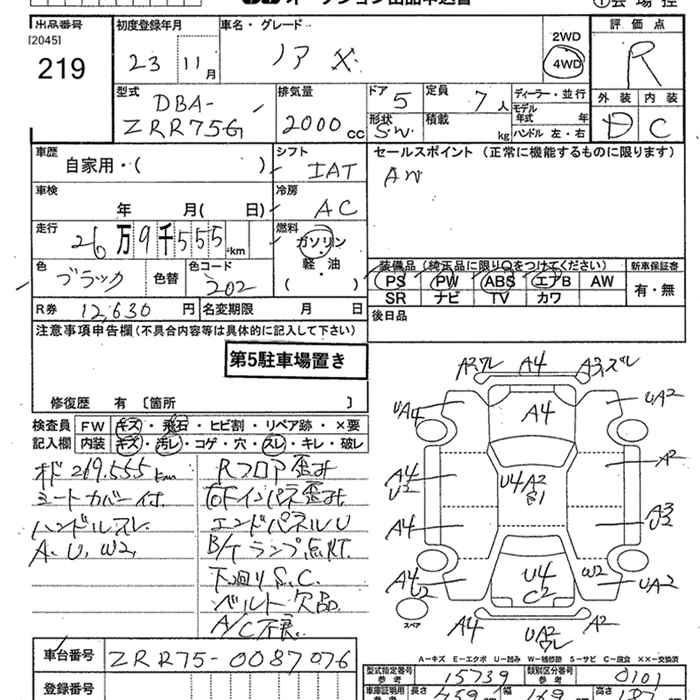 オークション出品申込書
①会場控
出品番号
[2045]
219
初度登録年月
23 11月
車名・グレード
ノア X
2WD
4WD
評価点
R
外装 内装
D C
型式
DBA-
ZRR75G
排気量
2000cc
ドア 5
形状 SW
定員 7人
積載 kg
ディーラー・並行
モデル年式 年
ハンドル 左・右
車歴
自家用・( )
シフト
IAT
セールスポイント (正常に機能するものに限ります)
AW
車検
年 月( 日)
冷房
AC
走行
26万9千555km
燃料
ガソリン
・
軽・油
( )
色
ブラック
色替
色コード
202
装備品 (純正品に限り○をつけてください)
PS PW ABS エアB AW
SR ナビ TV カワ
新車保証書
有・無
R券 12,630円
名変期限 月 日
後日品
注意事項申告欄(不具合内容等は具体的に記入して下さい)
第5駐車場置き
修復歴 有 〔箇所 〕
検査員記入欄
FW キズ・飛石・ヒビ割・リペア跡・×要
内装 キズ・汚レ・コゲ・穴・スレ・キレ・破レ
オド 269.555km
シートカバー付
ハンドルスレ
A.U.W2.
Rフロア歪み
右Fインパネ歪み
エンドパネルU
B/Tランプ点灯
下廻りS.C.
ベルト欠品
A/C不良
A2ワレ A4 A3ズレ
UA4 A4 UA2
A4
U2
U4A2
B1
A2
A4
A3
U2
A4
U2
U4
C2
W2
UA2
スペア
A4
UA2
ワレ
A2
A-キズ E-エクボ U-凹み W-補修跡 S-サビ C-腐食 ××-交換済
車台番号
ZRR75-0087076
登録番号
型式指定番号
参考
15739
類別区分番号
参考
0101
車庫証明用
参考
長さ 459 幅 169 高さ 187